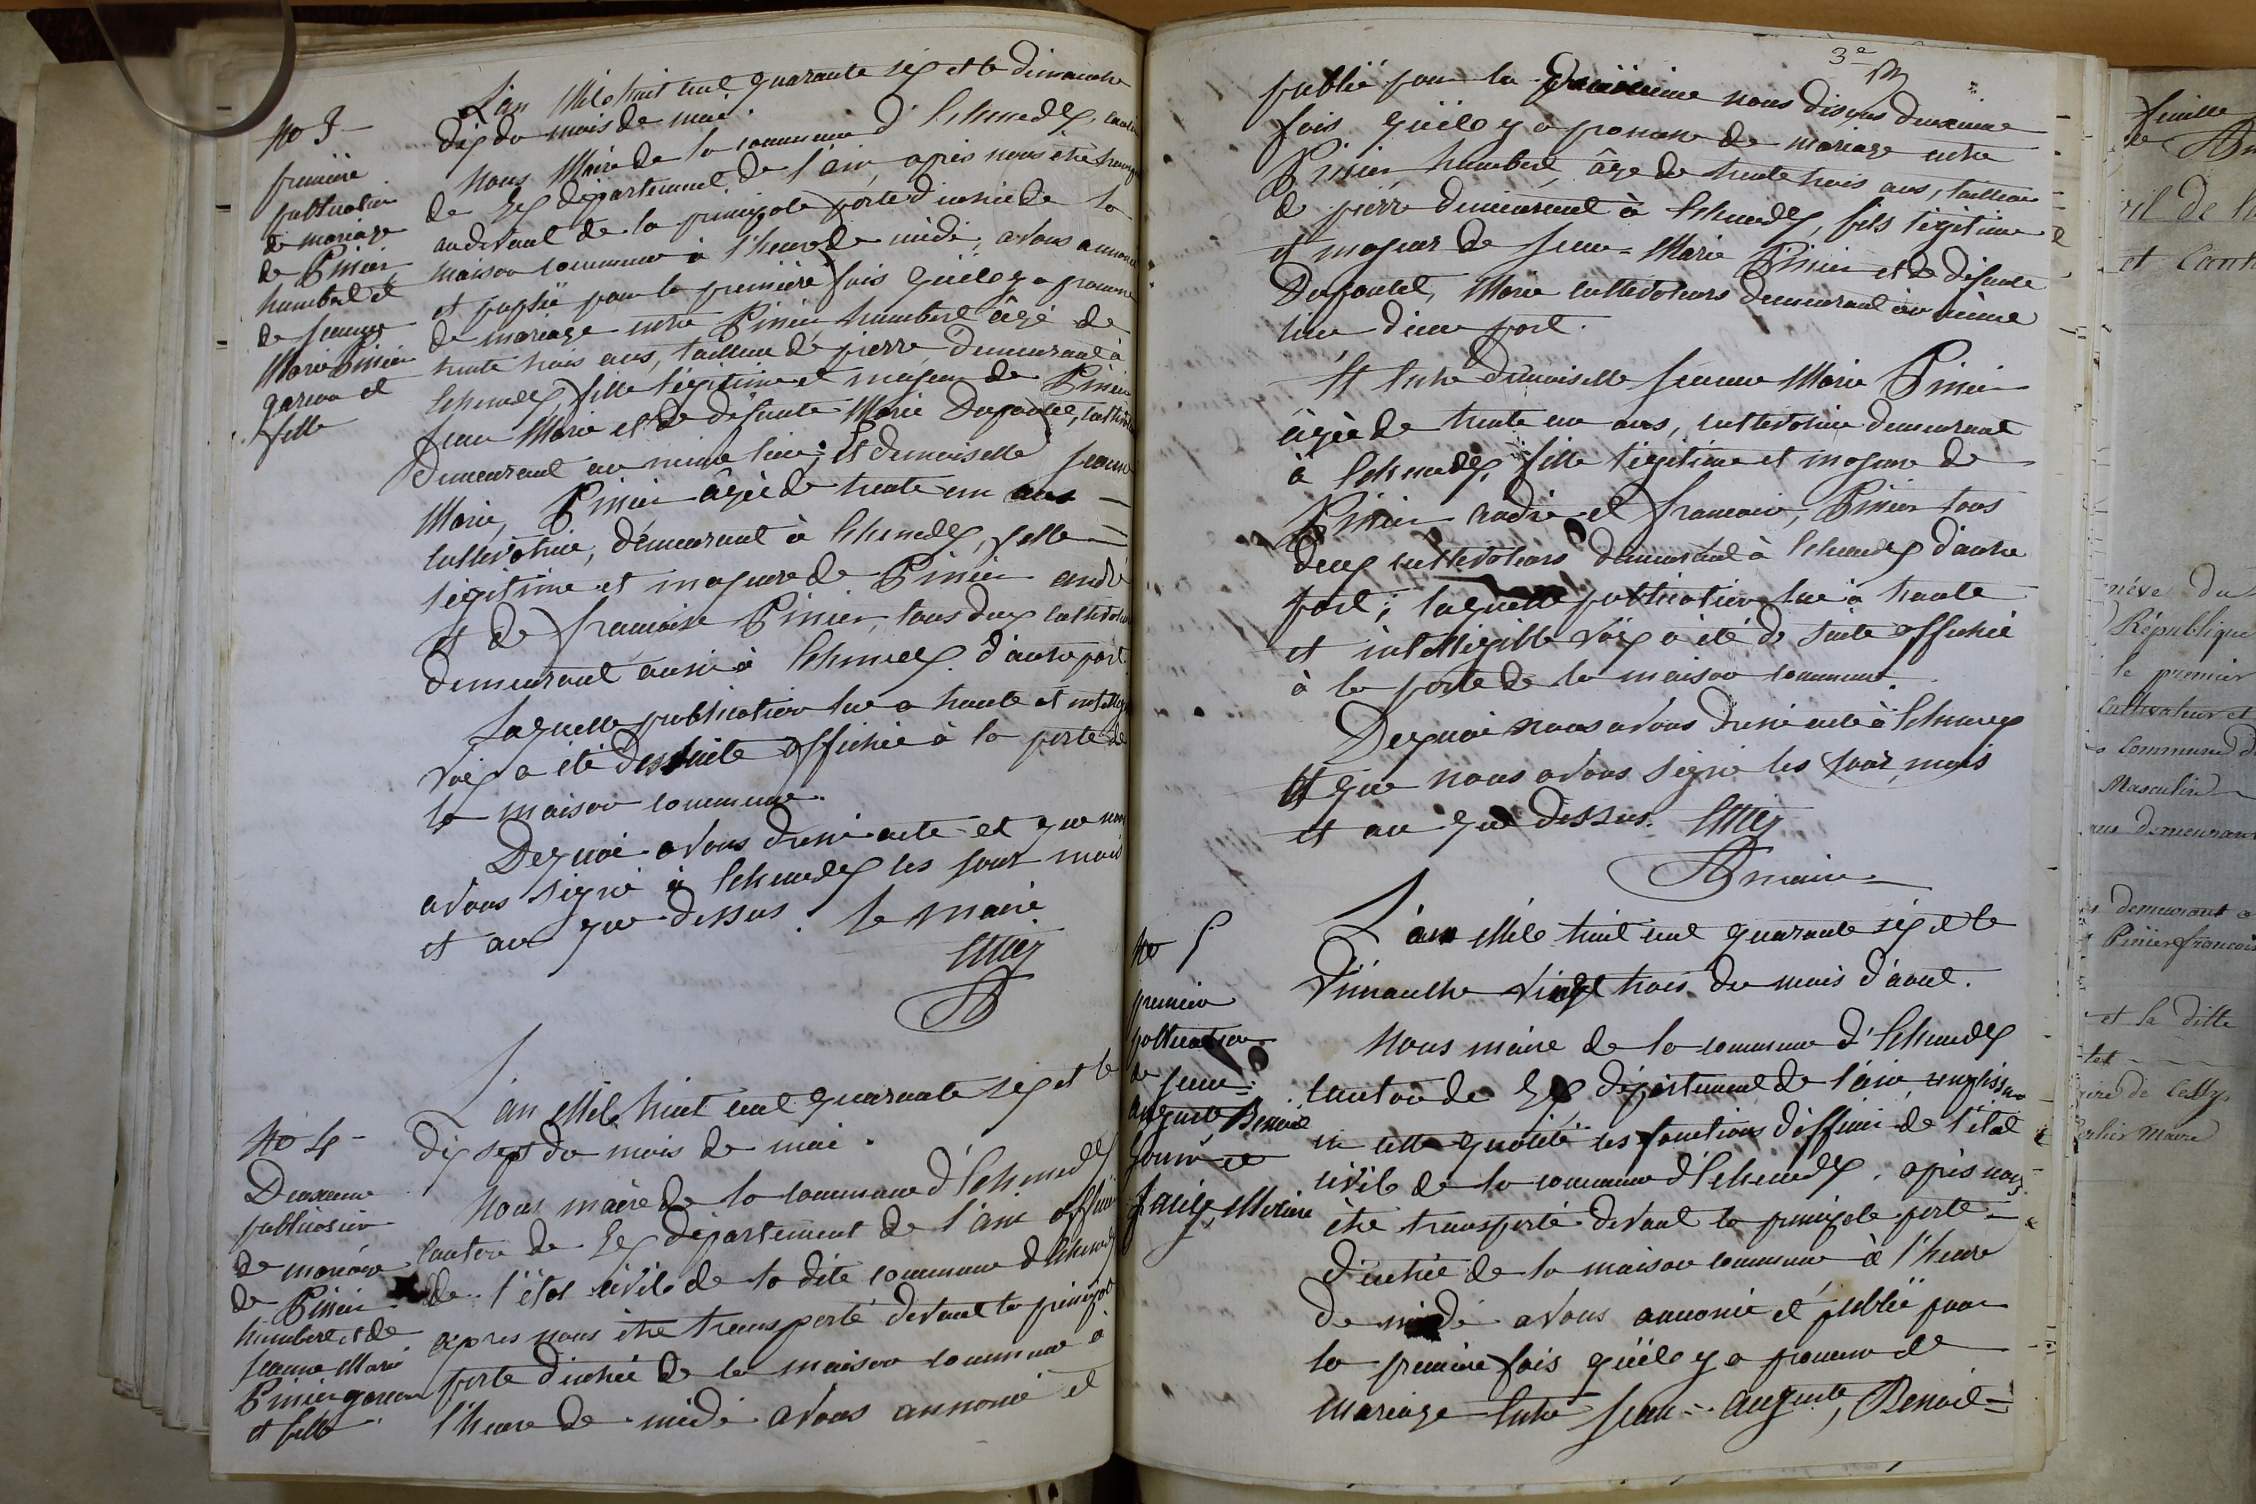 No 3
première
publication
de mariage
de Pinier
humbert et
de jeanne
Marie Pinier
garcon et
fille
L'an Mile huit cent quarante six et le dimanche
dix du mois de mai.
Nous Maire de la commune d'Echenevex, canton
de Gex département de l'ain, après nous être transporté
au devant de la principale porte d'entrée de la
maison commune à l'heure de midi, avons annoncé
et publié pour la première fois qu'ile y a promesse
de mariage entre Pinier humbert âgé de
trente trois ans, tailleur de pierre, demeurant à
Echenevex, fils légitime et majeur de Pinier
jean Marie et de défunte Marie Dupontet, cultivateurs
demeurant au même lieu; Et demoiselle jeanne
Marie, Pinier âgée de trente un ans
cultivatrice, démeurant à Echenevex, fille
légitime et majeure de Pinier andré
et de francoise Pinier, tous deux cultivateurs
demeurant aussi à Echenevex d'autre part.
Laquelle publication lue a haute et intelligible
voix a été de suite affichée à la porte de
la maison commune.
De quoi avons dressé acte et que nous
avons signé à Echenevex les jour mois
et an que dessus. le Maire
No 4
Deuxieme
publication
de mariage
de Pinier
humbert et de
jeanne Marie
Pinier garcon
et fille
L'an Mile huit cent quarante six et le
dix sept du mois de mai.
Nous maire de la commune d'Echenevex
canton de Gex département de l'ain officier
de l'état civile de la dite commune d'Echenevex
après nous être transporté devant la principale
porte d'entrée de la maison commune à
l'heure de midi avons annoncé et
3e
publié pour la nous disons deuxieme
fois qu'ile y a promesse de mariage entre
Pinier humbert, âge de trente trois ans, tailleur
de pierre demeurant à Echenevex, fils légitime
et majeur de jean-Marie Pinier et de défunte
Dupontet, Marie cultivateurs demeurant au même
lieu d'une part.
Et Entre demoiselle jeanne Marie Pinier
âgée de trente un ans, cultivatrice demeurant
à Echenevex, fille légitime et majeure de
Pinier andré et francoise, Pinier tous
deux cultivateurs demeurant à Echenevex d'autre
part; laquelle publication lue à haute
et intelligible voix a été de suite affichée
à la porte de la maison commune.
De quoi nous avons dressé acte à Echenevex
et que nous avons signé les jour, mois
et an que dessus.
maire
No 5
premiere
publication
de jean
auguste Benoit
L'an Mile huit cent quarante six et le
dimanche vingt trois du mois d'aout.
Nous maire de la commune d'Echenevex
canton de Gex département de l'ain, remplissant
en cette qualité les fonctions d'officier de l'état
civile de la commune d'Echenevex, après nous
être transporté devant la principale porte
d'entrée de la maison commune à l'heure
de midi avons annoncé et publié pour
la première fois qu'ile y a promesse de
mariage Entre jean-auguste, Benoit
feuille
et Cant
République
le premier
Cultivateur et
Commune d
Masculin
demeurant a
Pinier francois
et la ditte
Maire